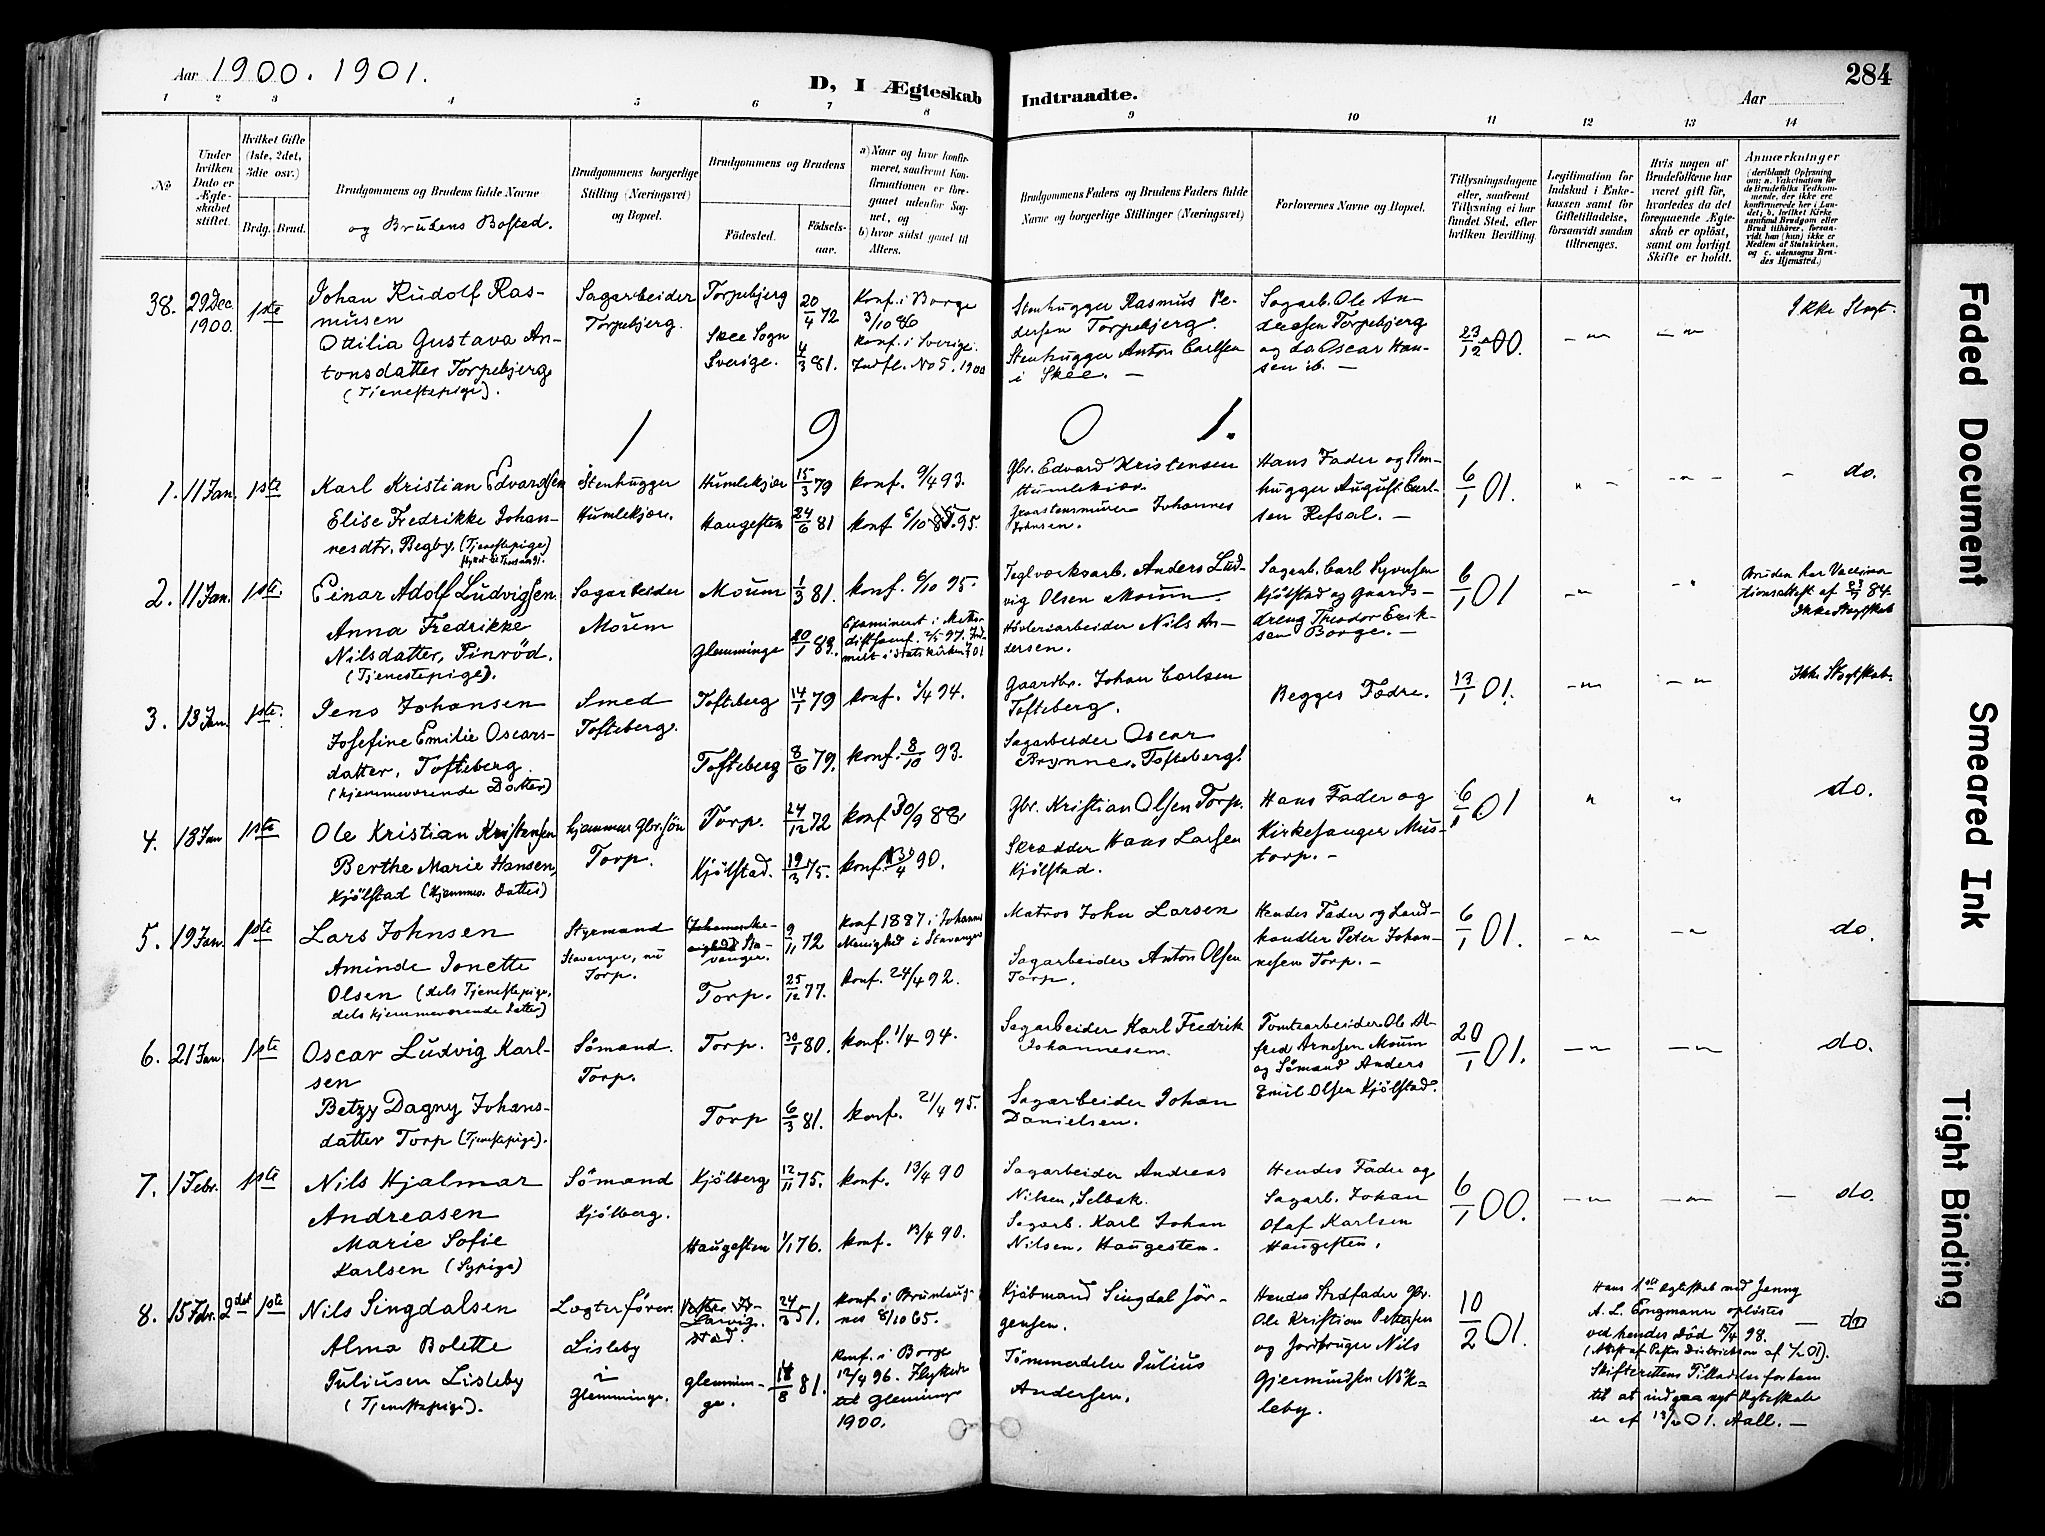 Aar 1900. 1901.
D, I Ægteskab Indtraadte.
Aar
284
1 2 3 4 5 6 7 8 9 10 11 12 13 14
No
Under hvilken Dato er Ægteskabet stiftet.
Hvilket Gifte (1ste, 2det, 3die osv.)
Brdg. Brud.
Brudgommens og Brudens fulde Navne
og Brudens Bosted.
Brudgommens borgerlige Stilling (Næringsvei) og Bopæl.
Brudgommens og Brudens
Fødested.
Fødselsaar.
a) Naar og hvor konfirmeret, saafremt Konfirmationen er foregaaet udenfor Sognet, og
b) hvor sidst gaaet til Alters.
Brudgommens Faders og Brudens Faders fulde Navne og borgerlige Stillinger (Næringsvei)
Forlovernes Navne og Bopæl.
Tillysningsdagene eller, saafremt Tillysning ei har fundet Sted, efter hvilken Bevilling.
Legitimation for Indskud i Enkekassen samt for Giftetilladelse, forsaavidt saadan tiltrænges.
Hvis nogen af Brudefolkene har været gift før, hvorledes da det foregaaende Ægteskab er opløst, samt om lovligt Skifte er holdt.
Anmærkninger
(deriblandt Oplysning om: a. Vakcination for de Brudefolks Vedkommende, der ikke ere konfirmerede her i Landet; b. hvilket Kirkesamfund Brudgom eller Brud tilhører, forsaavidt han (hun) ikke er Medlem af Statskirken, og c. udensogns Brudes Hjemsted.)
38. 29 Dec. 1900. 1ste
Johan Rudolf Rasmusen
Ottilia Gustava Antonsdatter Torpebjerg
(Tjenestepige).
Sagarbeider
Torpebjerg.
Torpebjerg 20/4 72
Skee Sogn Sverige. 4/3 81.
Konf. i Borge 3/10 86
Konf. i Sverige.
Indfl. No 5. 1900
Stenhugger Rasmus Pedersen Torpebjerg.
Stenhugger Anton Carlsen i Skee. —
Sagarb. Ole Andersen Torpebjerg og do Oscar Hansen ib. —
23/12 00.
1901.
1. 11 Jan. 1ste
Karl Kristian Edvardsen
Elise Fredrikke Johannesdtr. Begby. (Tjenestepige)
Stenhugger
Humlekjær.
Humlekjær 15/3 79
Haugesten 24/6 81
Konf. 9/4 93.
Konf 6/10 95.
Gbr. Edvard Kristensen Humlekjær.
Graastensmurer Johannes Johnsen.
Hans Fader og Stenhugger August Carlsen Refsal. —
6/1 01.
do.
2. 11 Jan. 1ste.
Einar Adolf Ludvigsen.
Anna Fredrikke Nilsdatter, Pinröd.
(Tjenestepige).
Sagarbeider
Moum
Moum 1/3 81.
Glemminge 20/1 83.
Konf. 6/10 95.
Teglværksarb. Anders Ludvig Olsen Moum.
Høvleriarbeider Nils Andersen.
Sagarb. Carl Syversen Kjølstad og Gaardsdreng Theodor Eriksen Borge. —
6/1 01
Bruden har Vaccinationsattest af 23/9 84.
3. 13 Jan. 1ste.
Jens Johansen
Josefine Emilie Oscarsdatter, Tofteberg.
(hjemmeværende Datter)
Smed
Tofteberg.
Tofteberg 14/1 79
Tofteberg 8/6 79.
Konf. 1/4 94.
Konf. 8/10 93.
Gaardbr. Johan Carlsen Tofteberg.
Sagarbeider Oscar Brynne. Tofteberg.
Begges Fædre.
13/1 01.
4. 18 Jan 1ste
Ole Kristian Kristensen
Berthe Marie Hansen, Kjölstad (hjemmev. Datter)
hjemmev. Gbr.sön
Torp.
Torp. 24/12 72
Kjölstad. 19/3 75.
Konf 30/9 88.
Konf. 13/4 90.
Gbr. Kristian Olsen Torp.
Skrædder Hans Larsen Kjölstad.
Hans Fader og Kirkesanger Mustorp. —
6/1 01
do.
5. 19 Jan. 1ste
Lars Johnsen
Aminde Jonette Olsen (dels Tjenestepige, dels hjemmeværende Datter)
Styrmand
Stavanger, nu Torp.
Stavanger. 9/11 72
Torp. 25/12 77.
Konf 1887 i Johannes Menighed i Stavanger
Konf. 24/4 92.
Matros John Larsen
Sagarbeider Anton Olsen Torp.
Hendes Fader og Landhandler Peter Johannesen Torp. —
6/1 01.
do.
6. 21 Jan. 1ste
Oscar Ludvig Karlsen
Betzy Dagny Johansdatter Torp (Tjenestepige).
Sömand.
Torp.
Torp. 30/1 80.
Torp 6/3 81.
Konf. 1/4 94.
Konf. 21/4 95.
Sagarbeider Karl Fredrik Johannesen.
Sagarbeider Johan Danielsen.
Tomtearbeider Ole Alfred Arnesen Moum og Sömand Anders Emil Olsen Kjölstad.
20/1 01.
do.
7. 1 Febr. 1ste
Nils Hjalmar Andreasen
Marie Sofie Karlsen (Sypige)
Sömand
Kjölberg.
Kjölberg 12/11 75.
Haugesten 1/1 76.
Konf. 13/4 90
Konf. 13/4 90.
Sagarbeider Andreas Nilsen, Selbak.
Sagarb. Karl Johan Nilsen, Haugesten.
Hendes Fader og Sagarb. Johan Olaf Karlsen Haugesten.
6/1 00.
do.
8. 15 Febr. 2det 1ste
Nils Singdalsen
Alma Bolette Juliusen Lisleby
(Tjenestepige).
Lisleby i Glemminge.
24/3 51.
Glemminge. 18/8 81.
Konf. i Brunlugnes 8/10 65.
Konf. i Borge 12/4 96. Flyttede til Glemminge 1900.
Kjöbmand Singdal Jörgensen.
Tömmerdeler Julius Andersen.
Hendes Stedfader Gbr. Ole Kristian Pettersen og Jordbruger Nils Gjermundsen Nökleby.
10/2 01.
Hans 1ste Ægteskab med Jenny A. L. Engmann oplöstes ved hendes Död 15/4 98.
Skifterettens Tilladelse for ham til at indgaa nyt Ægteskab er af 13/2 01. Aall. —
Faded Document
Smeared Ink
Tight Binding